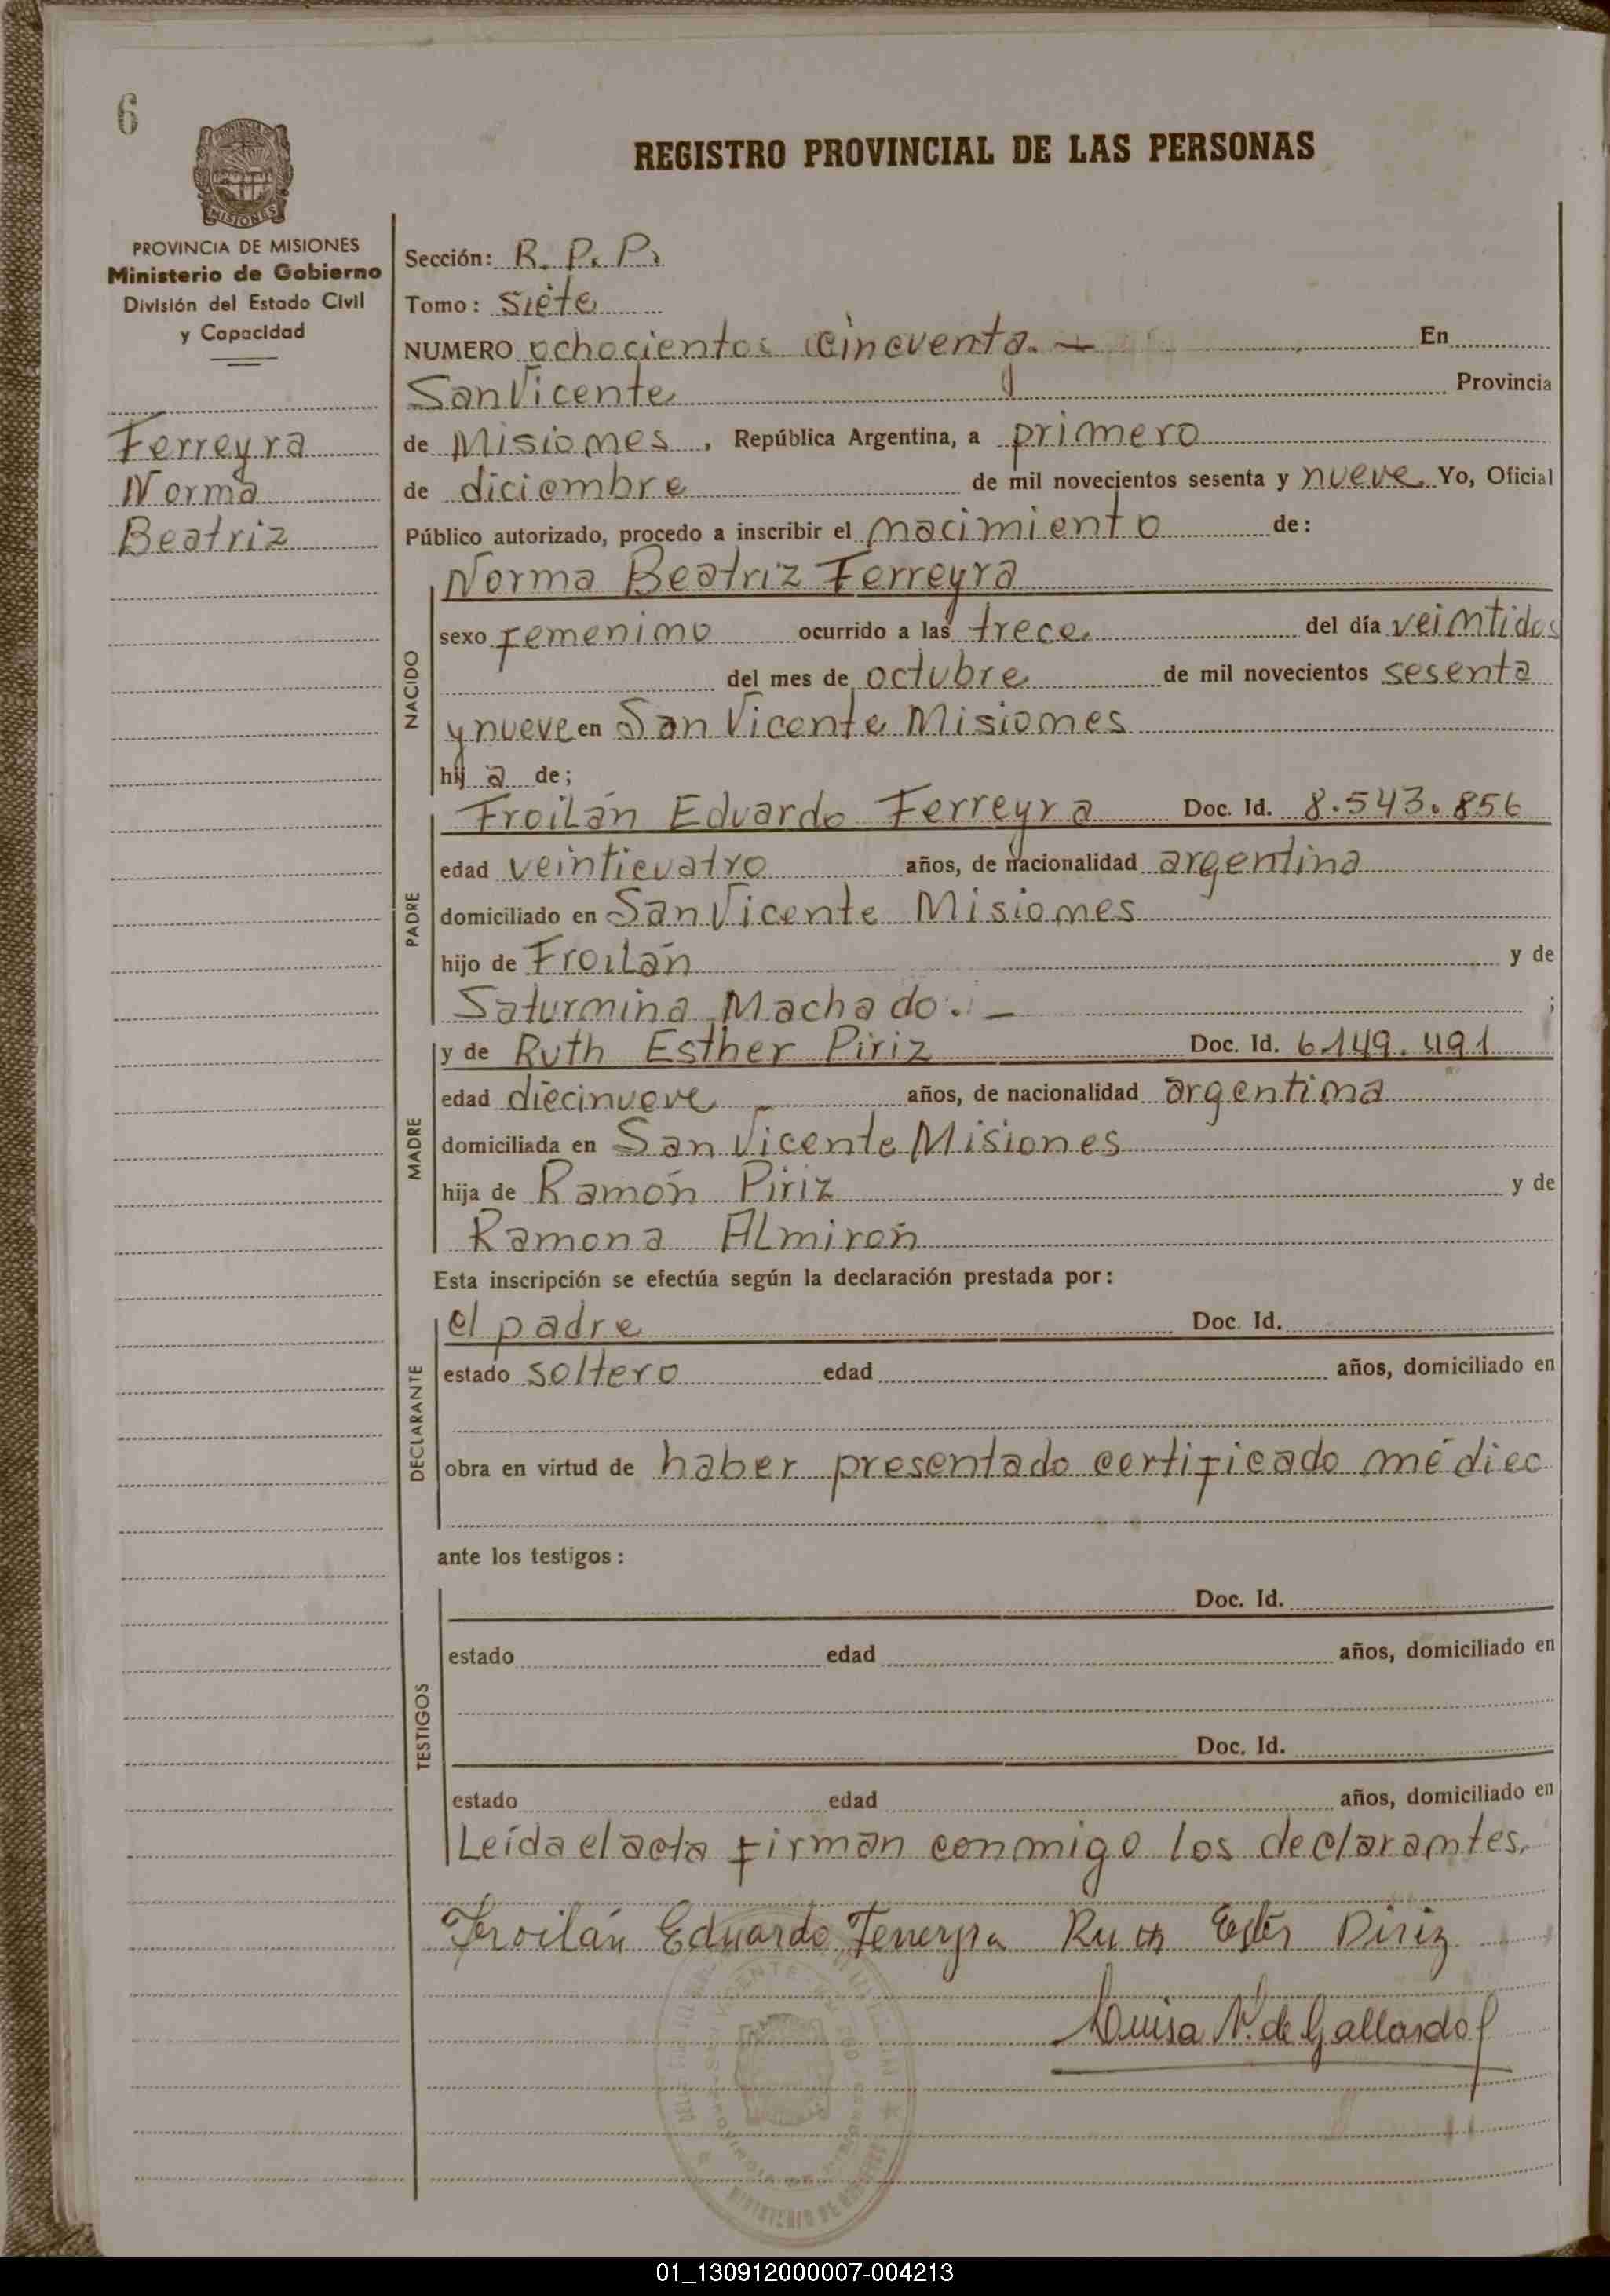 6
REGISTRO PROVINCIAL DE LAS PERSONAS
MISIONES
PROVINCIA DE MISIONES
Ministerio de Gobierno
División del Estado Civil
y Capacidad
Ferreyra
Norma
Beatriz
Sección: R. P. P.
Tomo: Siete
NUMERO ochocientos cincuenta. — En
San Vicente Provincia
de Misiones, República Argentina, a primero
de diciembre de mil novecientos sesenta y nueve. Yo, Oficial
Público autorizado, procedo a inscribir el nacimiento de:
NACIDO
Norma Beatriz Ferreyra
sexo femenino ocurrido a las trece del día veintidos
del mes de octubre de mil novecientos sesenta
y nueve en San Vicente Misiones
hij a de;
PADRE
Froilán Eduardo Ferreyra Doc. Id. 8.543.856
edad veinticuatro años, de nacionalidad argentina
domiciliado en San Vicente Misiones
hijo de Froilán y de
Saturnina Machado. — ;
MADRE
y de Ruth Esther Piriz Doc. Id. 6.149.491
edad diecinueve años, de nacionalidad argentina
domiciliada en San Vicente Misiones
hija de Ramón Piriz y de
Ramona Almirón
Esta inscripción se efectúa según la declaración prestada por:
DECLARANTE
el padre Doc. Id.
estado soltero edad años, domiciliado en
obra en virtud de haber presentado certificado médico
ante los testigos:
TESTIGOS
Doc. Id.
estado edad años, domiciliado en
Doc. Id.
estado edad años, domiciliado en
Leída el acta firman conmigo los declarantes.
Froilán Eduardo Ferreyra Ruth Ester Piriz
Luisa N. de Gallardo
01_130912000007-004213